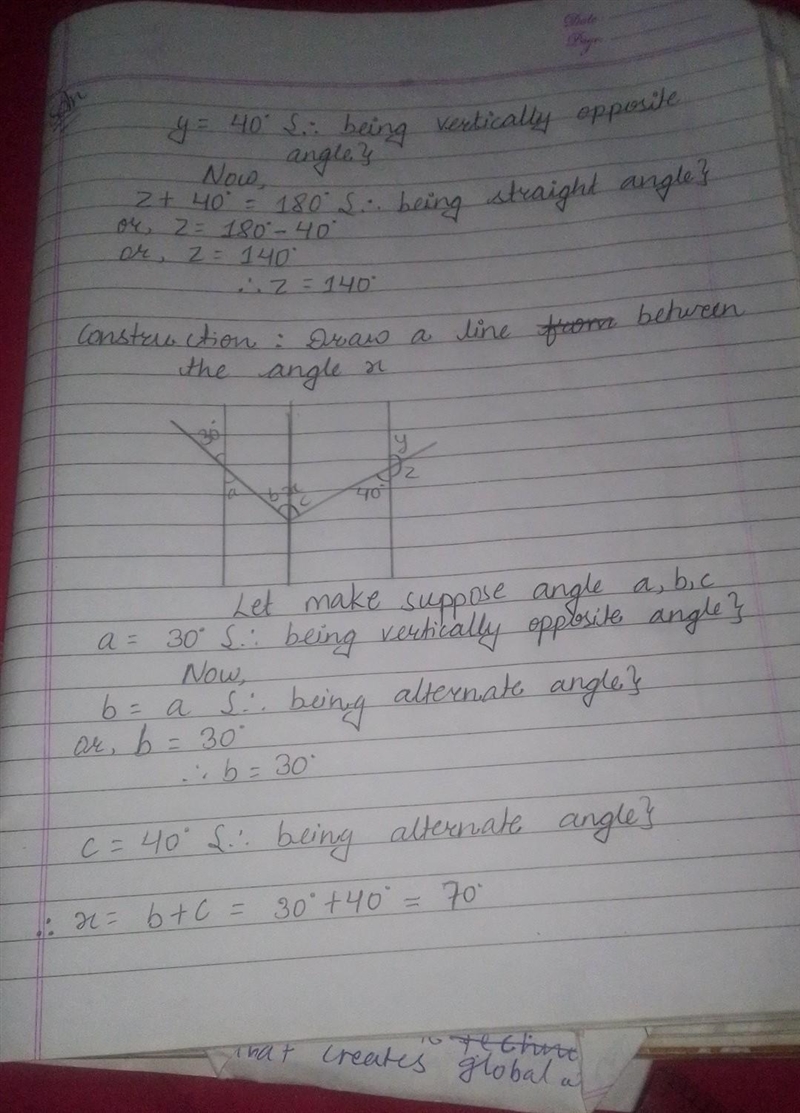 Date
Page
y = 40° {∴ being vertically opposite
angle}
Now,
z + 40° = 180° {∴ being straight angle}
or, z = 180° - 40°
or, z = 140°
∴ z = 140°
Construction : Draw a line from between
the angle x
30°
y
a
b
x
c
40°
z
Let make suppose angle a, b, c
a = 30° {∴ being vertically opposite angle}
Now,
b = a {∴ being alternate angle}
or, b = 30°
∴ b = 30°
c = 40° {∴ being alternate angle}
∴ x = b + c = 30° + 40° = 70°
that creates global